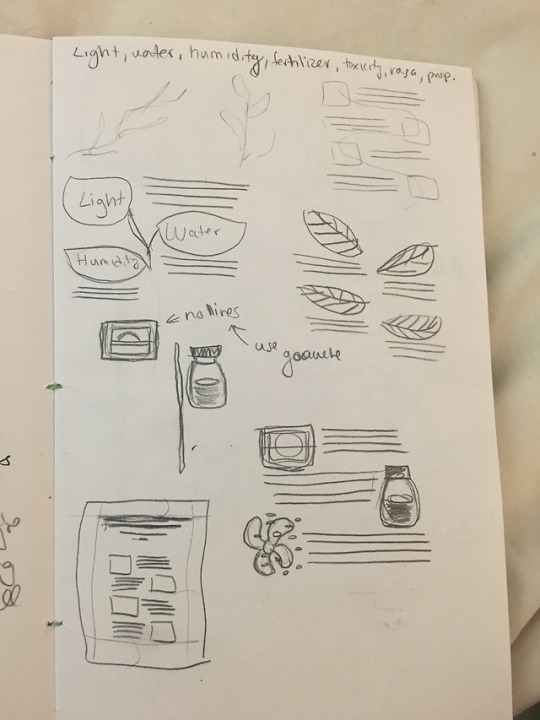 Light, water, humidity, fertilizer, toxicity, prop.
Light
Water
Humidity
← no lines
use goauche